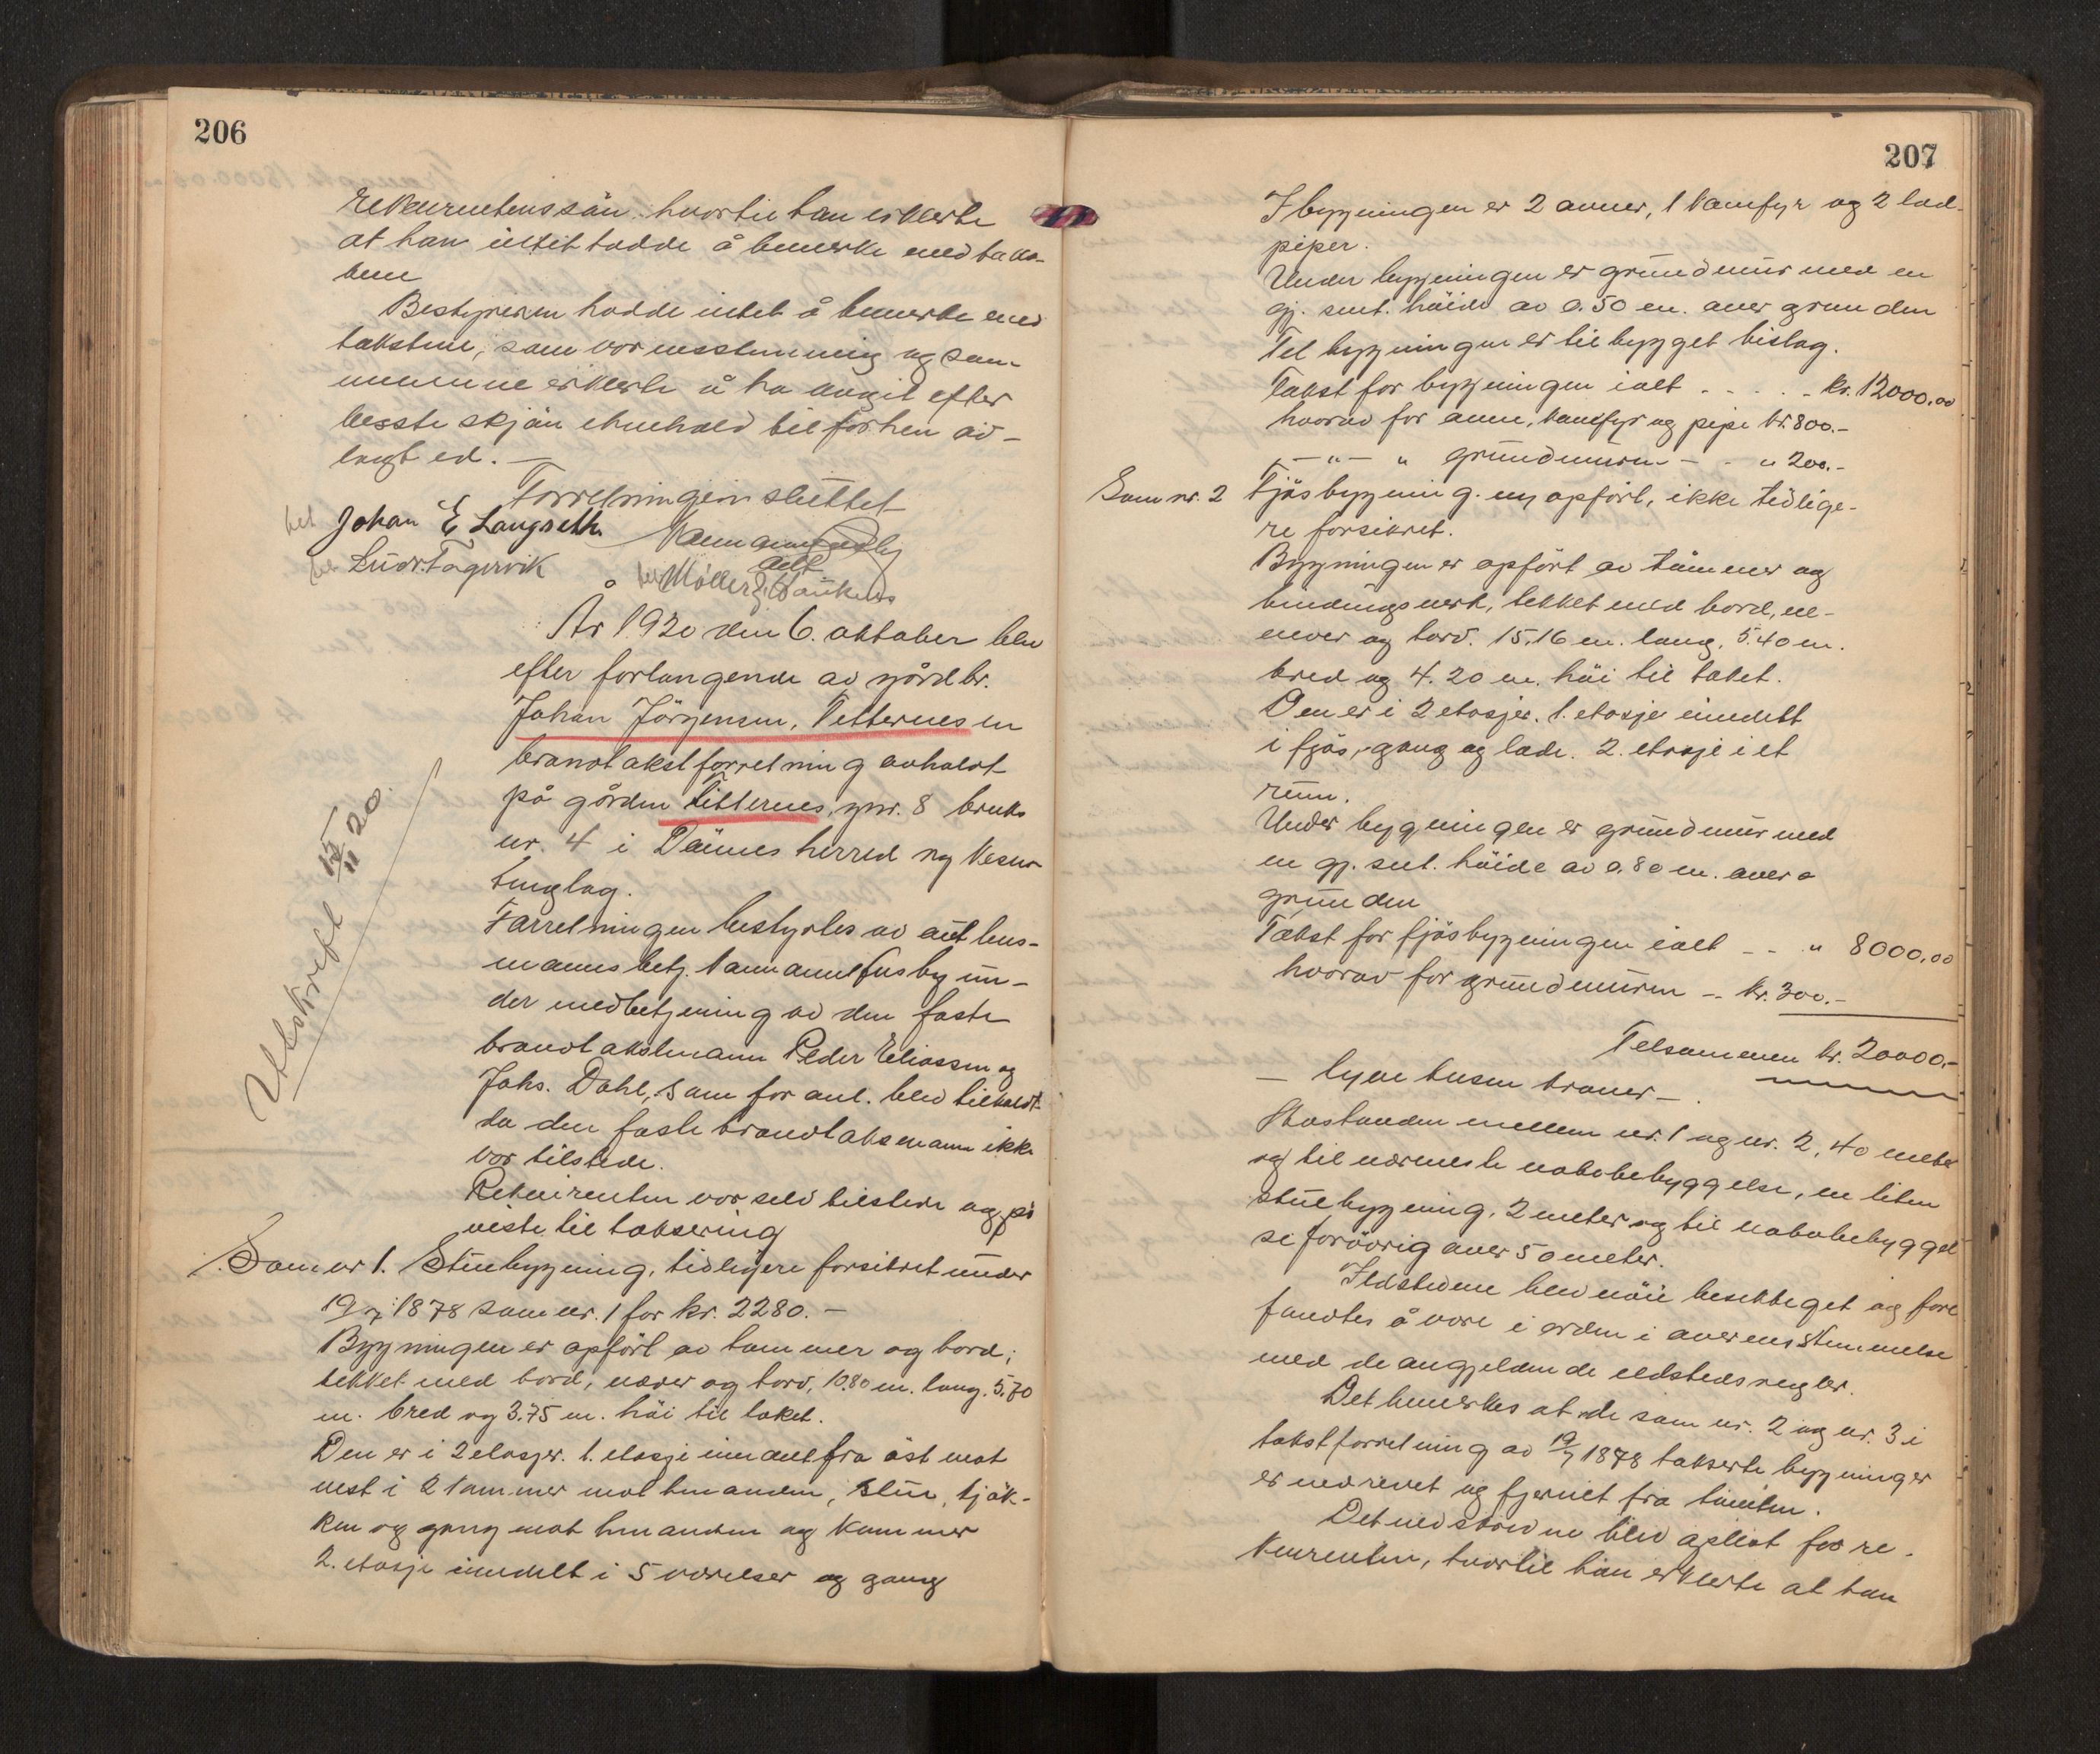 206
Rekvirentens sön, hvortil han erklerte
at han intet hadde å bemerke med takst-
bene
Bestyreren hadde intet å bemerke med
takstene, som var enstemmig og sam-
mene erklerte å ha avgit efter
besste skjön i henhold til forhen av-
lagt ed. —
Forretningen sluttet
Johan E Langseth.
Møller
År 1920 den 6. oktober blev
efter forlangende av gårdbr.
Johan Jörgensen, Titternes en
brandtakstforretning avholdt
på gården Titternes, gnr. 8 bruks
nr. 4 i Dönnes herred og Nesna
tinglag.
Forretningen bestyrtes av aut lens-
mannsbetj. Normann Husby un-
der medbetjening av den faste
brandtakstmann Peder Eliassen og
Johs. Dahl, som for anl. blev tilkaldt
da den faste brandtakstmann ikke
var tilstede.
Rekvirenten var selv tilstede og på
viste til taksering
Utskrift 15/11 20.
Som nr 1. Stuebygning, tidligere forsikret under
19/7 1878 som nr. 1 for kr. 2280. —
Bygningen er opført av tømmer og bord;
tekket med bord, never og torv, 10.80 m. lang. 5.70
m. bred og 3.75 m. höi til taket.
Den er i 2 etasjer. 1. etasje inndelt fra öst mot
vest i 2 kammer mot hinanden, stue, kjök-
ken og gang mot hinanden og kammer
2. etasje inndelt i 5 værelser og gang
207
I bygningen er 2 ovner, 1 komfyr og 2 lod-
piper.
Under bygningen er grundmur med en
gj. snit. höide av 0.50 m. over grunden
Til bygningen er tilbygget bislag.
Takst for bygningen ialt - - - - - kr. 12000.00
hvorav for ovne, komfyr og pipe kr. 800.-
" — " — " grundmuren — - " 200.-
Som nr. 2 Fjösbygning. ny opfört, ikke tidlige-
re forsikret.
Bygningen er opfört av tömmer og
bindingsverk, tekket med bord, ne-
never og torv. 15.16 m. lang, 5.40 m.
bred og 4.20 m. höi til taket.
Den er i 2 etasjer. 1. etasje inndelt
i fjös, gang og lade. 2. etasje i et
rum.
Under bygningen er grundmur med
en gj. snit. höide av 0.80 m. over
grunden
Takst for fjösbygningen ialt - - " 8000.00
hvorav for grundmuren - kr. 300.-
Tilsammen kr. 20000.-
— tyve tusen kroner —.
Avstanden mellem nr. 1 og nr. 2, 40 meter
og til nærmeste nabobebyggelse, en liten
stuebygning, 2 meter og til nabobebyggel
se forövrig over 50 meter.
Ildstedene blev nöie besiktiget og fore
fandtes å være i orden i overensstemmelse
med de angjeldende ildstedsregler.
Det bemerkes at de som nr. 2 og nr. 3 i
takstforretning av 19/7 1878 takserte bygninger
er nedrevet og fjernet fra tomten.
Det nedskrevne blev oplest for re-
kvirenten, hvortil han erklerte at han